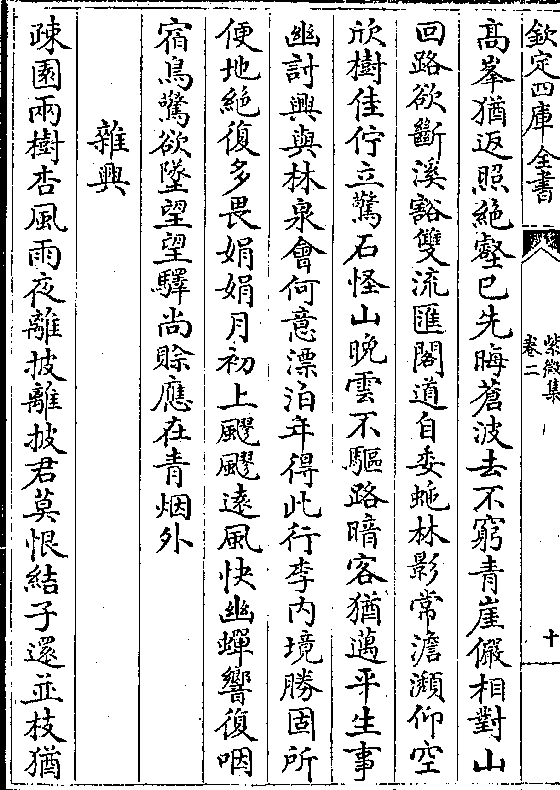 欽定四庫全書
紫微集
卷二
十
高峯猶返照絶壑已先晦蒼波去不窮青崖儼相對山
回路欲斷溪豁雙流匯閣道自委蛇林影常澹瀩仰空
欣樹佳佇立驚石怪山晩雲不驅路暗客猶邁平生事
幽討興與林泉會何意漂泊年得此行李内境勝固所
便地絶復多畏娟娟月初上颼颼逺風快幽蟬響復咽
宿鳥驚欲墜望望驛尚賖應在青烟外
雜興
疎園兩樹杏風雨夜離披離披君莫恨結子還並枝猶